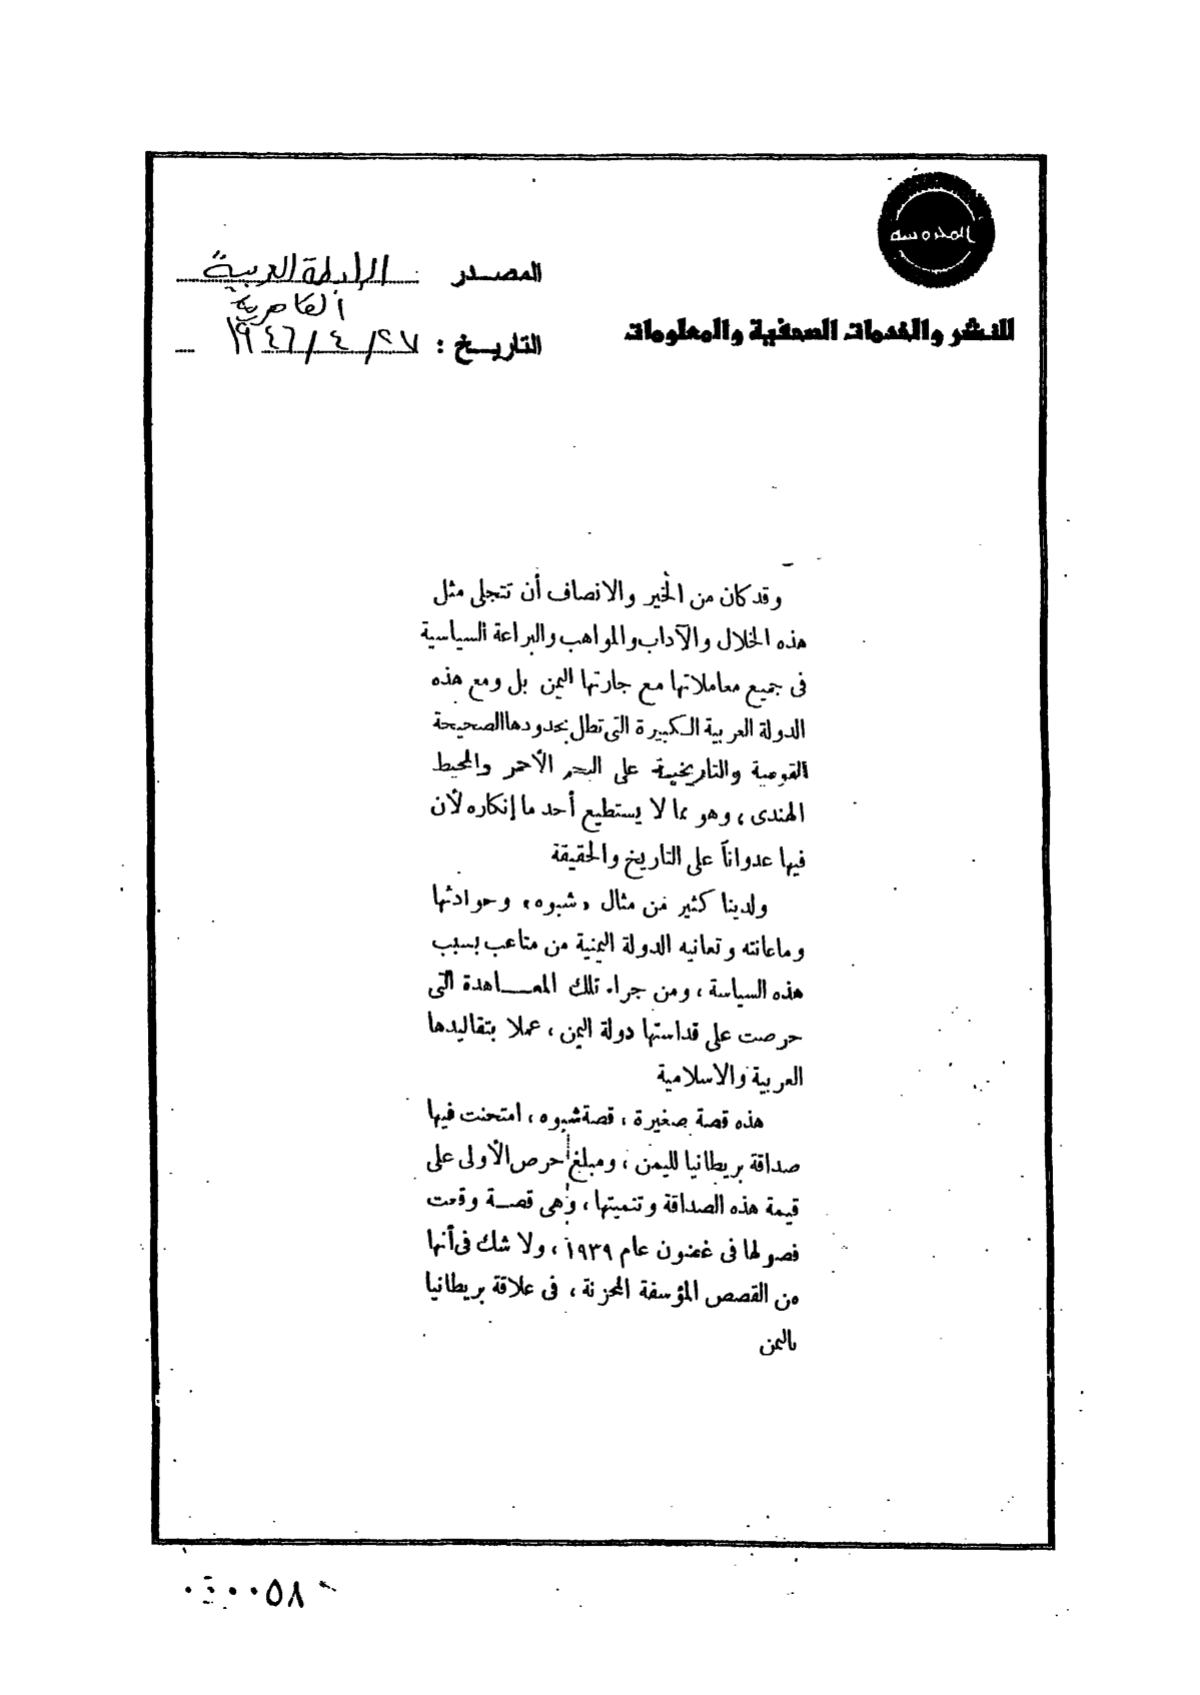 المحروسة
للنشر والخدمات الصحفية والمعلومات
المصدر : الرابطة العربية
القاهرية
التاريخ : ٢٧/٤/١٩٤٦
وقد كان من الخير والانصاف أن تتجلى مثل
هذه الخلال والآداب والمواهب والبراعة السياسية
فى جميع معاملاتها مع جارتها اليمن بل ومع هذه
الدولة العربية الكبيرة التى تطل بحدودها الصحيحة
القومية والتاريخية على البحر الأحمر والمحيط
الهندى ، وهو مما لا يستطيع أحد ما إنكاره لأن
فيها عدواناً على التاريخ والحقيقة
ولدينا كثير من مثال «شبوه» وحوادثها
وماعانته وتعانيه الدولة اليمنية من متاعب بسبب
هذه السياسة ، ومن جراء تلك المعـــاهدة التى
حرصت على قداستها دولة اليمن ، عملا بتقاليدها
العربية والاسلامية
هذه قصة صغيرة ، قصة شبوه ، امتحنت فيها
صداقة بريطانيا لليمن ، ومبلغ حرص الأولى على
قيمة هذه الصداقة وتنميتها ، وهى قصــة وقعت
فصولها فى غضون عام ١٩٣٩ ، ولا شك فى أنها
من القصص المؤسفة المحزنة ، فى علاقة بريطانيا
باليمن